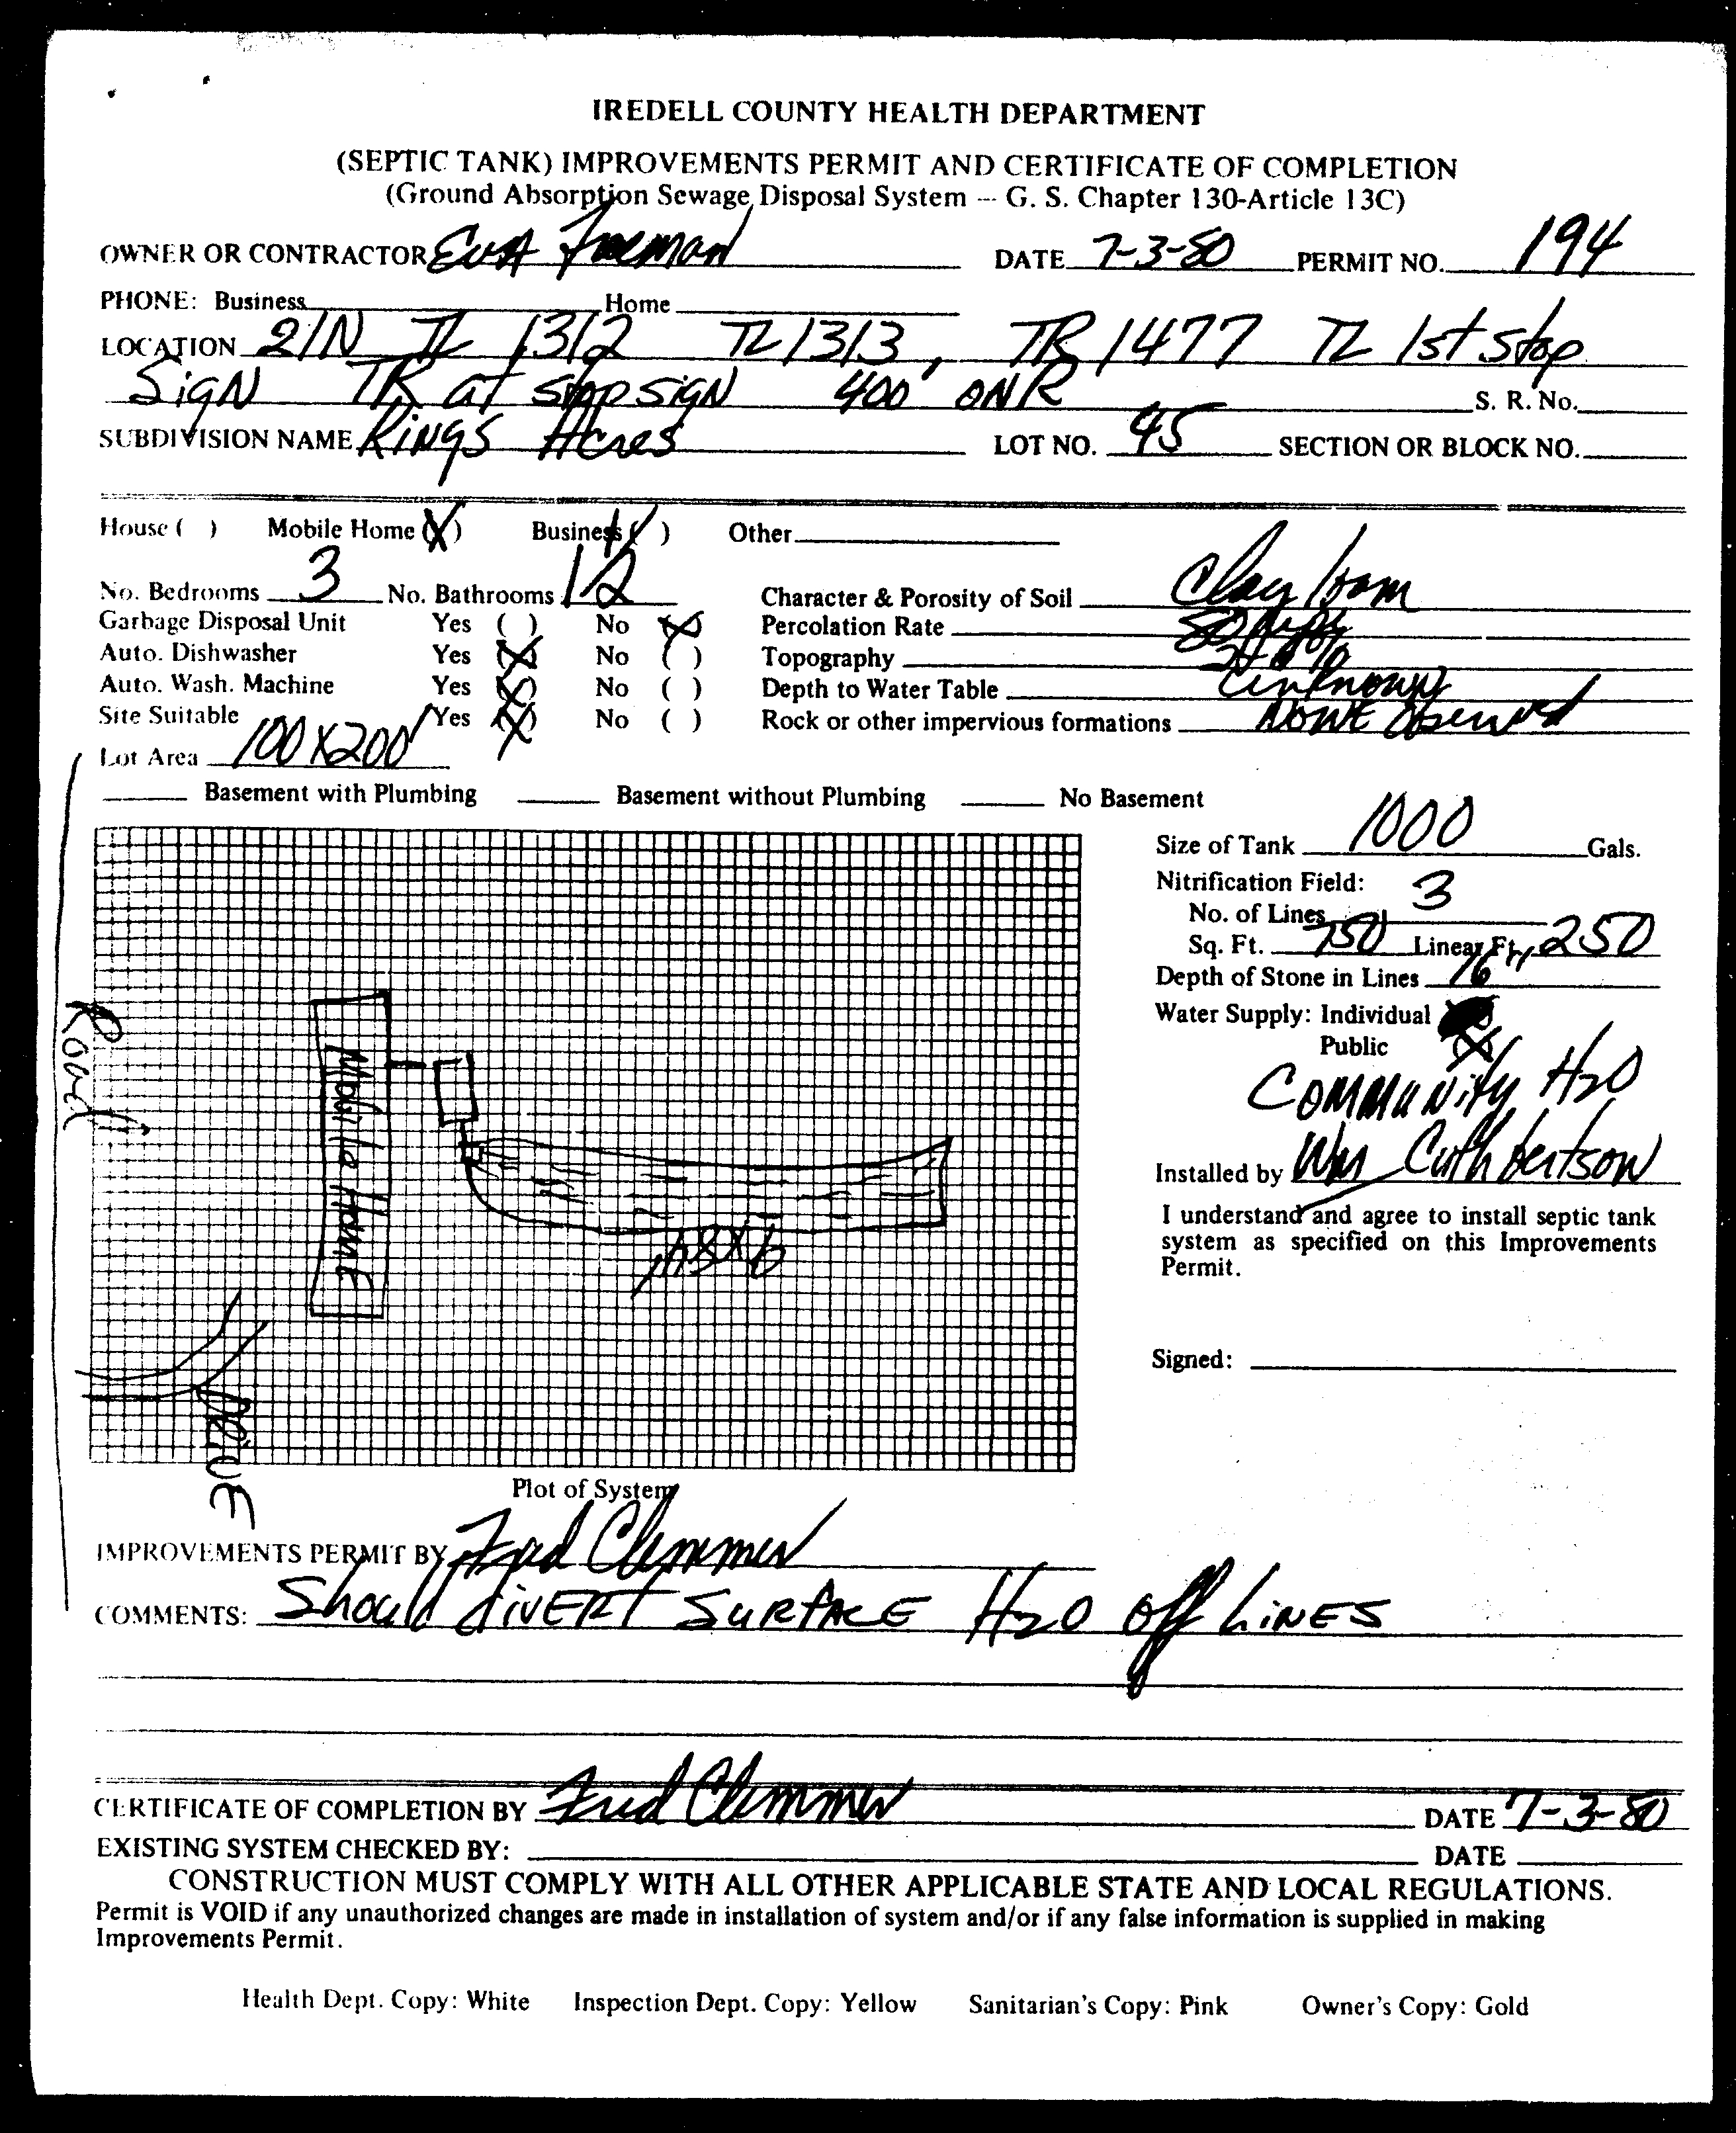 IREDELL COUNTY HEALTH DEPARTMENT
(SEPTIC TANK) IMPROVEMENTS PERMIT AND CERTIFICATE OF COMPLETION
(Ground Absorption Sewage Disposal System -- G. S. Chapter 130-Article 13C)
OWNER OR CONTRACTOR Freeman DATE 7-3-80 PERMIT NO. 194
PHONE: Business Home
LOCATION 21N TL 1312 TL 1313, TR 1477 TL 1st stop
SIGN TR at stop SIGN 400' ON R S. R. No.
SUBDIVISION NAME KINGS Acres LOT NO. 45 SECTION OR BLOCK NO.
House ( ) Mobile Home (X) Business ( ) Other
No. Bedrooms 3 No. Bathrooms 1 1/2 Character & Porosity of Soil Clay loam
Garbage Disposal Unit Yes ( ) No (X) Percolation Rate
Auto. Dishwasher Yes (X) No ( ) Topography
Auto. Wash. Machine Yes (X) No ( ) Depth to Water Table Unknown
Site Suitable Yes (X) No ( ) Rock or other impervious formations NONE Observed
Lot Area 100 X 200'
Basement with Plumbing Basement without Plumbing No Basement
Size of Tank 1000 Gals.
Nitrification Field:
No. of Lines 3
Sq. Ft. 750 Linear Ft. 250
Depth of Stone in Lines 16"
Water Supply: Individual
Public (X)
COMMUNITY H2O
Installed by Wm Cuthbertson
I understand and agree to install septic tank
system as specified on this Improvements
Permit.
Signed:
Road
Mobile Home
DRIVE
Plot of System
IMPROVEMENTS PERMIT BY Fred Clemmer
COMMENTS: Should diVERT SURFACE H2O off LINES
CERTIFICATE OF COMPLETION BY Fred Clemmer DATE 7-3-80
EXISTING SYSTEM CHECKED BY: DATE
CONSTRUCTION MUST COMPLY WITH ALL OTHER APPLICABLE STATE AND LOCAL REGULATIONS.
Permit is VOID if any unauthorized changes are made in installation of system and/or if any false information is supplied in making
Improvements Permit.
Health Dept. Copy: White Inspection Dept. Copy: Yellow Sanitarian's Copy: Pink Owner's Copy: Gold